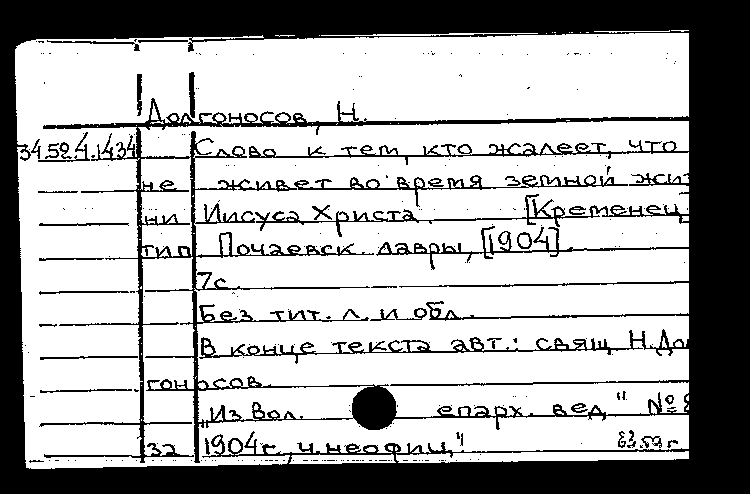 Долгоносов, Н.
34.59.4.1434 Слово к тем, кто жалеет, что
не живет во время земной жиз
ни Иисуса Христа. [Кременец,
тип. Почаевск. лавры, [1904].
7с.
Без тит. л. и обл.
В конце текста авт.: свящ. Н. Дол
гоносов.
„Из Вол. епарх. вед." №
32 1904г., ч. неофиц."